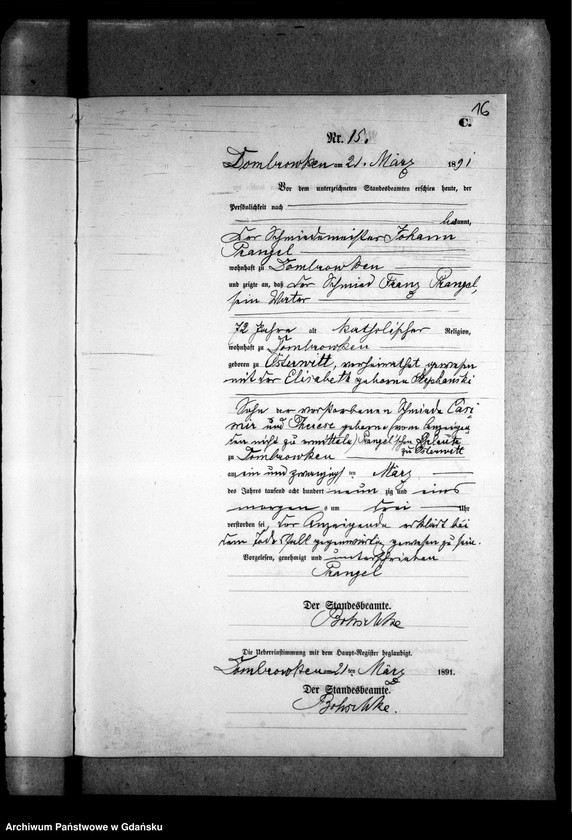 16
C.
Nr. 15.
Dombrowken am 21. März 1891
Vor dem unterzeichneten Standesbeamten erschien heute, der
Persönlichkeit nach
kannt,
der Schmiedemeister Johann
Prangel
wohnhaft zu Dombrowken
und zeigte an, daß der Schmied Franz Prangel,
sein Vater
72 Jahre alt katholischer Religion,
wohnhaft zu Dombrowken
geboren zu Osterwitt, verheirathet gewesen
mit der Elisabeth geborene
Sohn der verstorbenen Schmiede Casi
mir und Therese geborene (vom Anzeigen
den nicht zu ermitteln) Prangel'schen Eheleute
zu Osterwitt
zu Dombrowken
am ein und zwanzigsten März
des Jahres tausend acht hundert neun zig und eins
morgens um drei Uhr
verstorben sei, der Anzeigende erklärt bei
dem Todesfall gegenwärtig gewesen zu sein.
Vorgelesen, genehmigt und unterschrieben
Prangel
Der Standesbeamte.
Die Uebereinstimmung mit dem Haupt-Register beglaubigt.
Dombrowken 21 ten März 1891.
Der Standesbeamte.
Archiwum Państwowe w Gdańsku